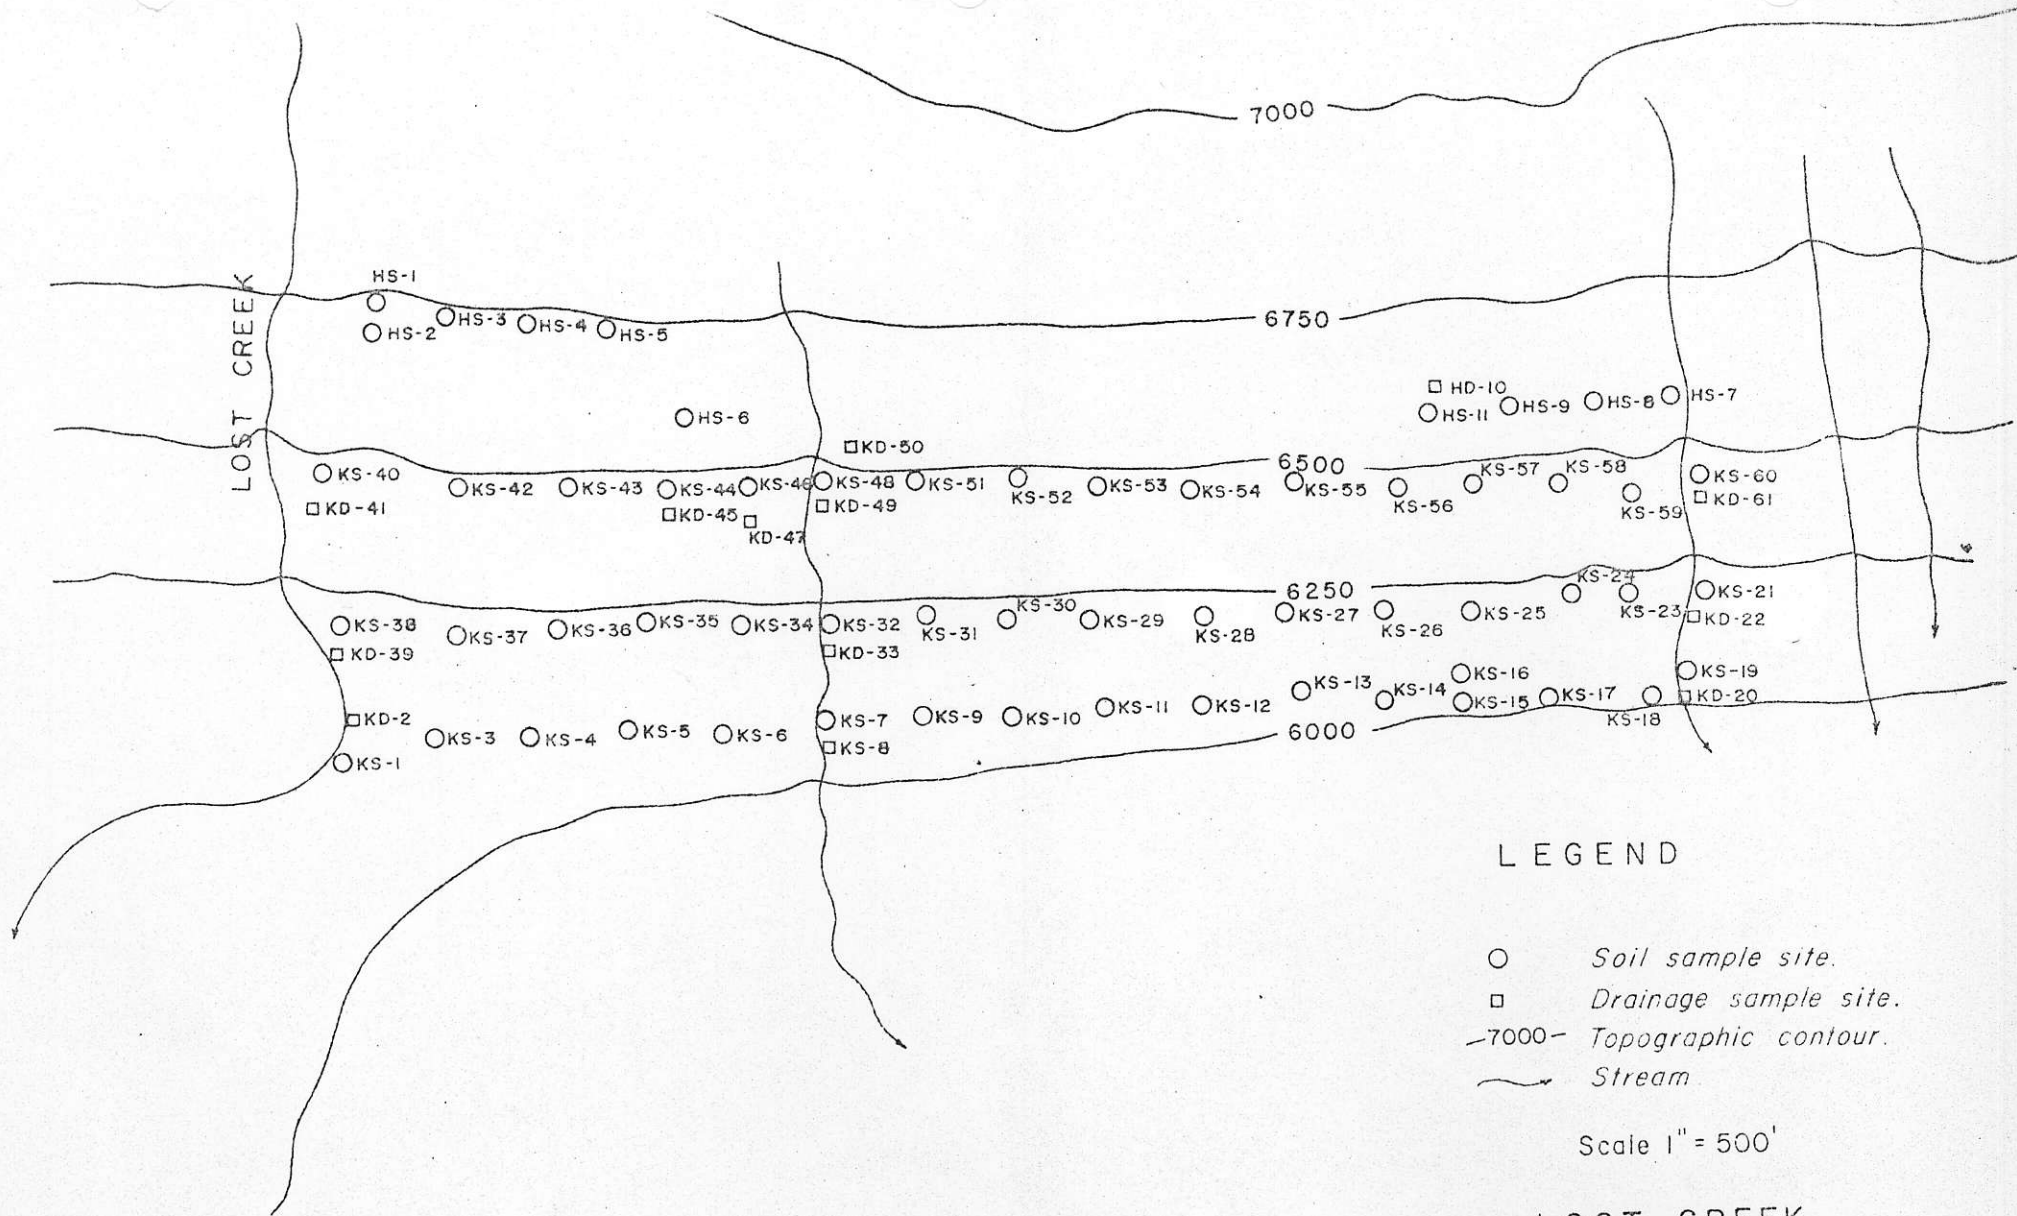 7000
LOST CREEK
HS-1
HS-2
HS-3
HS-4
HS-5
6750
HD-10
HS-11
HS-9
HS-8
HS-7
HS-6
KD-50
6500
KS-40
KS-42
KS-43
KS-44
KS-46
KS-48
KS-51
KS-52
KS-53
KS-54
KS-55
KS-56
KS-57
KS-58
KS-59
KS-60
KD-41
KD-45
KD-47
KD-49
KD-61
6250
KS-38
KS-37
KS-36
KS-35
KS-34
KS-32
KS-31
KS-30
KS-29
KS-28
KS-27
KS-26
KS-25
KS-24
KS-23
KS-21
KD-22
KD-39
KD-33
KD-2
KS-1
KS-3
KS-4
KS-5
KS-6
KS-7
KS-8
KS-9
KS-10
KS-11
KS-12
KS-13
KS-14
KS-16
KS-15
KS-17
KS-18
KS-19
KD-20
6000
LEGEND
Soil sample site.
Drainage sample site.
7000 Topographic contour.
Stream
Scale 1" = 500'
LOST CREEK